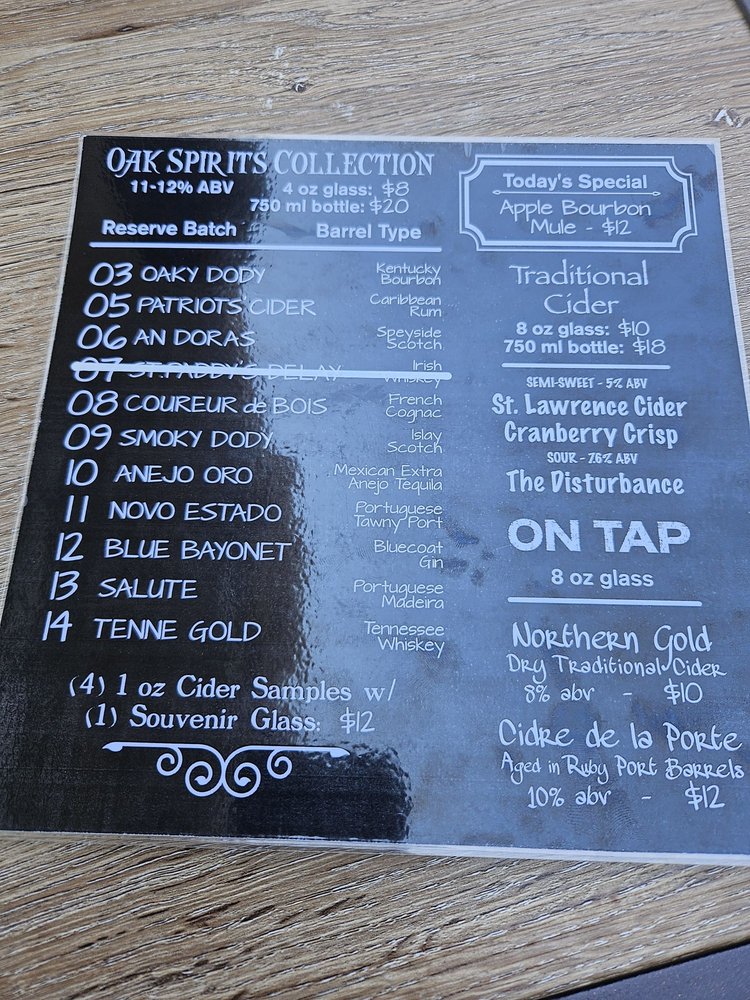 OAK SPIRITS COLLECTION
11-12% ABV 4 oz glass: $8
750 ml bottle: $20
Reserve Batch Barrel Type
03 OAKY DODY Kentucky Bourbon
05 PATRIOTS CIDER Caribbean Rum
06 AN DORAS Speyside Scotch
07 ST. PADDY'S DELAY Irish Whiskey
08 COUREUR de BOIS French Cognac
09 SMOKY DODY Islay Scotch
10 ANEJO ORO Mexican Extra Anejo Tequila
11 NOVO ESTADO Portuguese Tawny Port
12 BLUE BAYONET Bluecoat Gin
13 SALUTE Portuguese Madeira
14 TENNE GOLD Tennessee Whiskey
(4) 1 oz Cider Samples w/
(1) Souvenir Glass: $12
Today's Special
Apple Bourbon
Mule - $12
Traditional
Cider
8 oz glass: $10
750 ml bottle: $18
SEMI-SWEET - 5% ABV
St. Lawrence Cider
Cranberry Crisp
SOUR - 7.6% ABV
The Disturbance
ON TAP
8 oz glass
Northern Gold
Dry Traditional Cider
8% abv - $10
Cidre de la Porte
Aged in Ruby Port Barrels
10% abv - $12